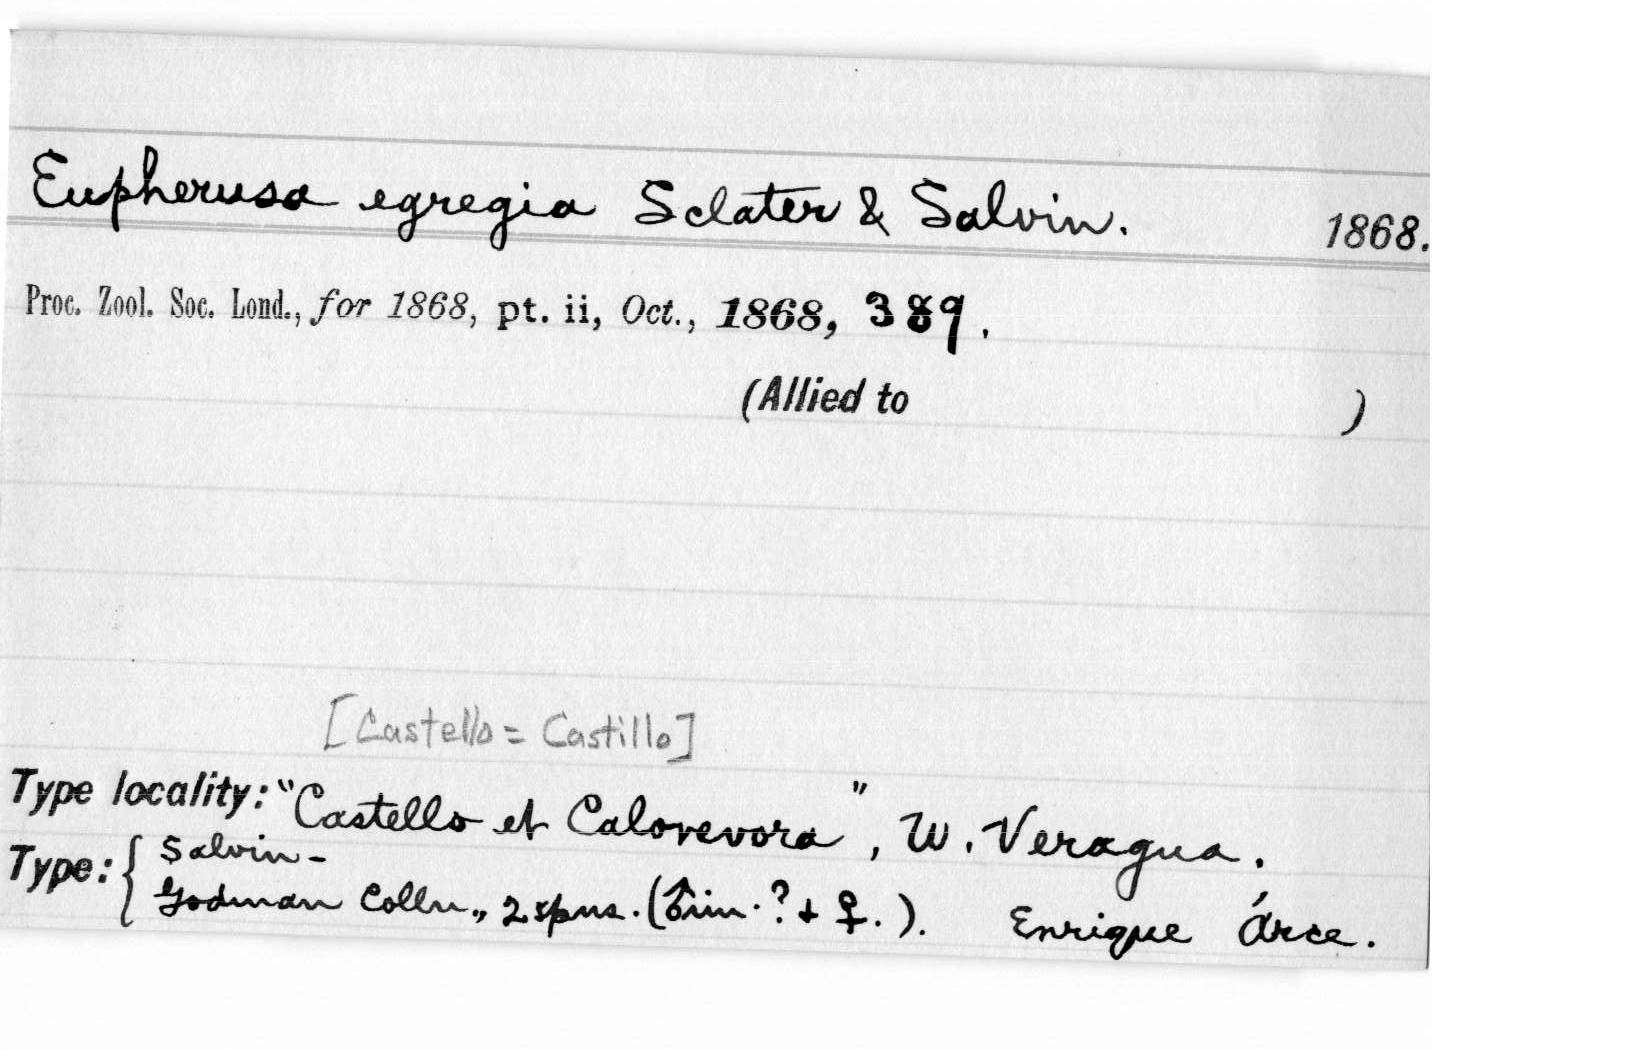 Eupherusa egregia Sclater & Salvin. 1868.
Proc. Zool. Soc. Lond., for 1868, pt. ii, Oct., 1868, 389.
(Allied to )
[Castello = Castillo]
Type locality: "Castello et Calovevora", W. Veragua.
Type: { Salvin-
Godman Colln., 2 spns. (♂im.? + ♀.). Enrique Árce.